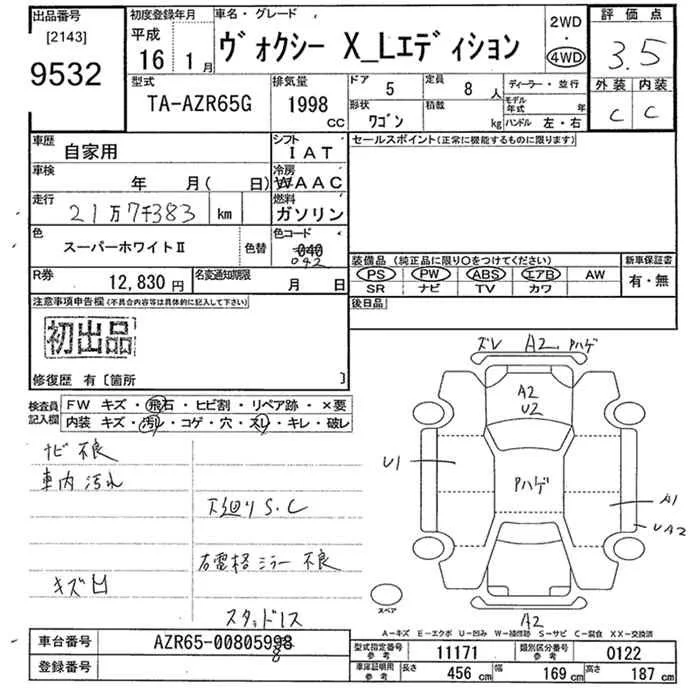 出品番号 初度登録年月 車名・グレード 2WD 評価点
[2143] 平成
9532 16年 1月 ヴォクシー X_Lエディション ・ 4WD 3.5
型式 排気量 ドア 5 定員 8人 ディーラー・並行 外装 内装
TA-AZR65G 1998cc 形状 ワゴン 積載 kg モデル年式 年 C C
ハンドル 左・右
車歴 自家用 シフト IAT セールスポイント(正常に機能するものに限ります)
車検 年 月( 日) 冷房 WAAC
走行 21万7千383 km 燃料 ガソリン
色 スーパーホワイトⅡ 色替 色コード 040
042
装備品 (純正品に限り○をつけてください) 新車保証書
R券 12,830円 名変通知期限 月 日 PS PW ABS エアB AW 有・無
SR ナビ TV カワ
注意事項申告欄(不具合内容等は具体的に記入して下さい) 後日品
初出品
修復歴 有〔箇所 〕
検査員記入欄 FW キズ・飛石・ヒビ割・リペア跡・×要
内装 キズ・汚レ・コゲ・穴・スレ・キレ・破レ
ナビ 不良
車内 汚れ
下廻り S.C
右電格ミラー 不良
キズ凹
スタッドレス
ズレ A2, Pハゲ
A2
U2
U1
Pハゲ
A1
UA2
スペア
A2
A-キズ E-エクボ U-凹み W-補修跡 S-サビ C-腐食 XX-交換済
車台番号 AZR65-0080598
8
型式指定番号 参考 11171 類別区分番号 参考 0122
登録番号 車庫証明用 参考 長さ 456 cm 幅 169 cm 高さ 187 cm